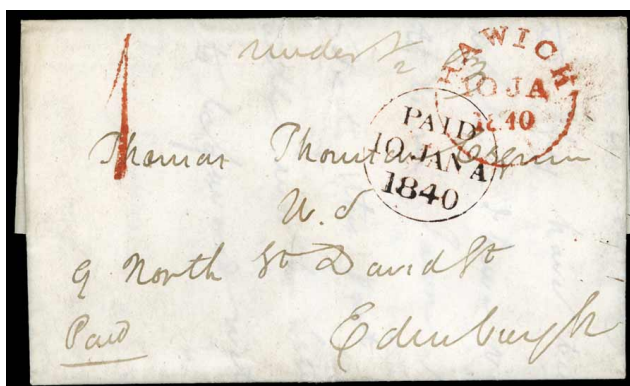 1
under ½ oz
HAWICK
10 JA
1840
PAID
10 JAN A
1840
Thomas Thomson
W.S
9 North St David St
Paid
Edinburgh